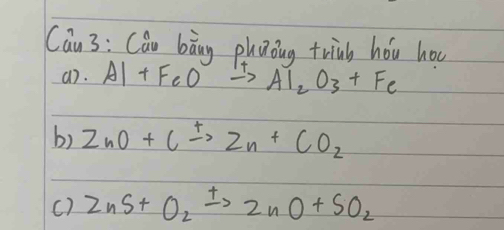 Câu 3: Cân bằng phương trình hóa học
a). Al + FeO t→ Al₂O₃ + Fe
b) ZnO + C t→ Zn + CO₂
c) ZnS + O₂ t→ ZnO + SO₂